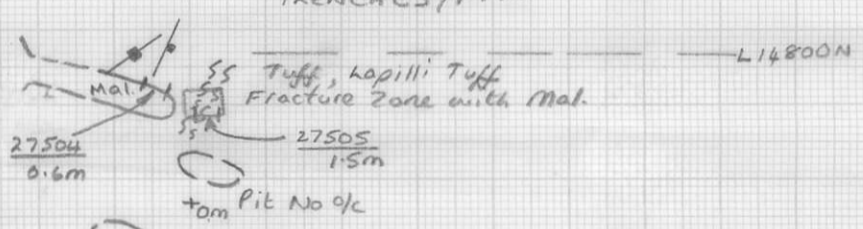 TRENCHES/
L14800N
Tuff, Lapilli Tuff
Mal.
Fracture Zone with Mal.
27504
0.6m
27505
1.5m
Pit No o/c
+0m